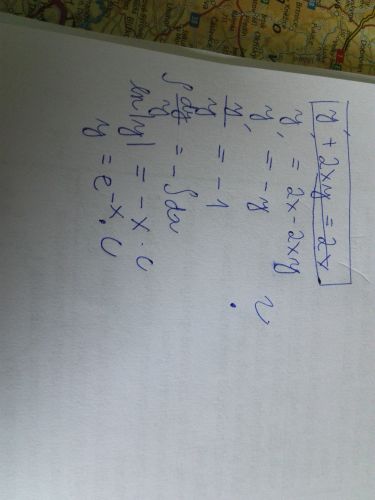 y' + 2xy = 2x.
y' = 2x - 2xy
y' = -y
y'/y = -1
∫ dy/y = -∫ dx
ln|y| = -x · c
y = e^-x · C